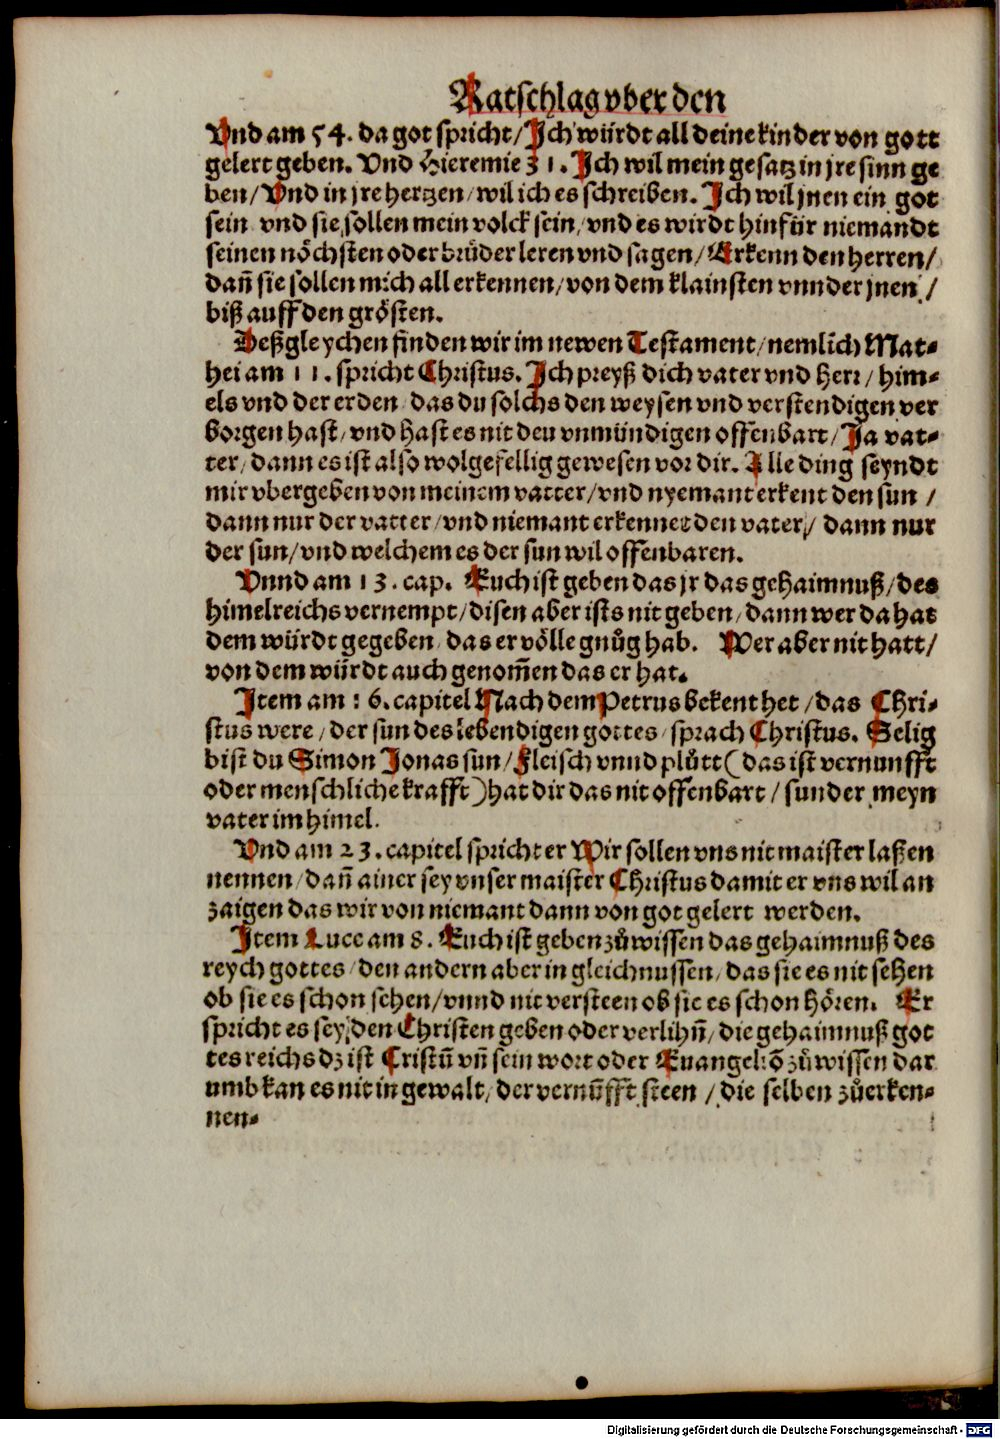 Ratschlag vber den
Vnd am 54. da got spricht/ Ich würdt all deine kinder von gott
gelert geben. Vnd Hieremie 31. Ich wil mein gesatz in jre sinn ge
ben/ Vnd in jre hertzen/ wil ich es schreiben. Ich wil jnen ein got
sein vnd sie sollen mein volck sein/ vnd es wirdt hinfür niemandt
seinen nöchsten oder brüder leren vnd sagen/ Erkenn den herren/
dañ sie sollen mich all erkennen/ von dem klainsten vnnder jnen/
biß auff den grösten.
Deßgleychen finden wir im newen Testament/ nemlich Mat-
hei am 11. spricht Christus. Ich preyß dich vater vnd Herr/ him-
els vnd der erden das du solchs den weysen vnd verstendigen ver
borgen hast/ vnd hast es nit den vnmündigen offenbart/ Ja vat-
ter/ dann es ist also wolgefellig gewesen vor dir. Alle ding seyndt
mir vbergeben von meinem vatter/ vnd nyemant erkent den sun/
dann nur der vatter/ vnd niemant erkennet den vater/ dann nur
der sun/ vnd welchem es der sun wil offenbaren.
Vnnd am 13. cap. Euch ist geben das jr das gehaimnuß/ des
himelreichs vernempt/ disen aber ists nit geben/ dann wer da hat
dem würdt gegeben/ das er völle gnůg hab. Wer aber nit hatt/
von dem würdt auch genom̄en das er hat.
Item am 16. capitel Nach dem Petrus bekent het/ das Chri-
stus were/ der sun des lebendigen gottes/ sprach Christus. Selig
bist du Simon Jonas sun/ Fleisch vnnd plůtt (das ist vernunfft
oder menschliche krafft) hat dir das nit offenbart/ sunder meyn
vater im himel.
Vnd am 23. capitel spricht er Wir sollen vns nit maister laßen
nennen/ dañ ainer sey vnser maister Christus damit er vns wil an
zaigen das wir von niemant dann von got gelert werden.
Item Luce am 8. Euch ist geben zůwissen das gehaimnuß des
reych gottes/ den andern aber in gleichnussen/ das sie es nit sehen
ob sie es schon sehen/ vnnd nit versteen ob sie es schon hören. Er
spricht es sey den Christen geben oder verlihñ/ die gehaimnuß got
tes reichs dz ist Cristū vñ sein wort oder Euangeliō zůwissen dar
umb kan es nit in gewalt/ der vernūfft steen/ die selben zůerken-
nen-
Digitalisierung gefördert durch die Deutsche Forschungsgemeinschaft - DFG